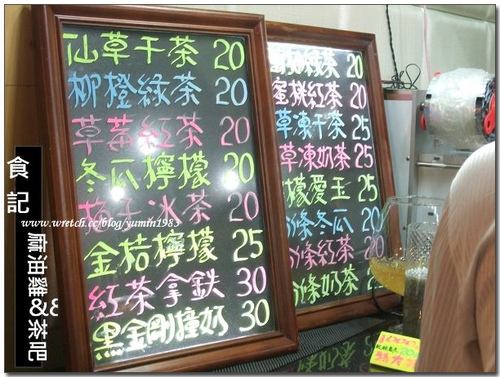 仙草干茶 20
柳橙綠茶 20
草莓紅茶 20
冬瓜檸檬 20
梅子冰茶 20
金桔檸檬 25
紅茶拿鐵 30
黑金剛撞奶 30
綠茶 20
蜜桃紅茶 20
草凍干茶 25
草凍奶茶 25
檸檬愛玉 25
條冬瓜 20
條紅茶 20
條奶茶 25
食記
麻油雞&茶吧
www.wretch.cc/blog/yumin1983